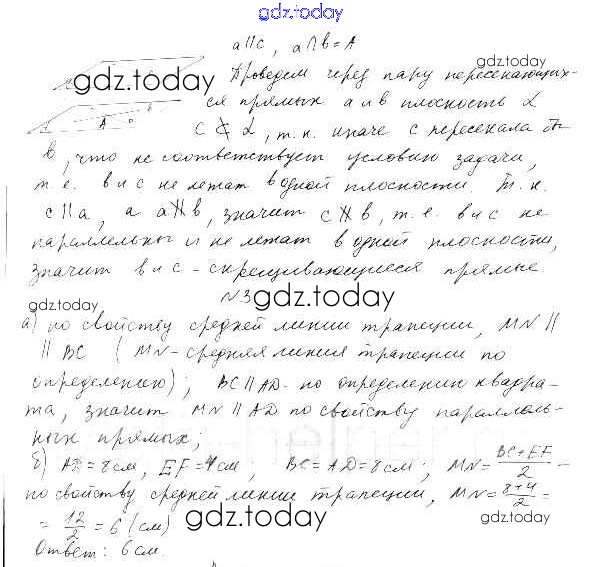 gdz.today
a||c, a∩b=A
gdz.today
gdz.today
Проведем через пару пересекающих-
ся прямых a и b плоскость α
A
a
b
c ⊄ α, т.к. иначе c пересекала бы
b, что не соответствует условию задачи,
т.е. b и c не лежат в одной плоскости. Т.к.
c||a, а a∦b, значит c∦b, т.е. b и c не
параллельны и не лежат в одной плоскости,
значит b и c - скрещивающиеся прямые
gdz.today
gdz.today
N3
gdz.today
gdz.today
а) по свойству средней линии трапеции, MN||
|| BC (MN - средняя линия трапеции по
определению); BC||AD - по определению квадра-
та, значит MN||AD по свойству параллель-
ных прямых;
б) AD=8см, EF=4см, BC=AD=8см; MN=(BC+EF)/2 -
по свойству средней линии трапеции, MN=(8+4)/2=
=12/2=6 (см)
gdz.today
gdz.today
Ответ: 6см.